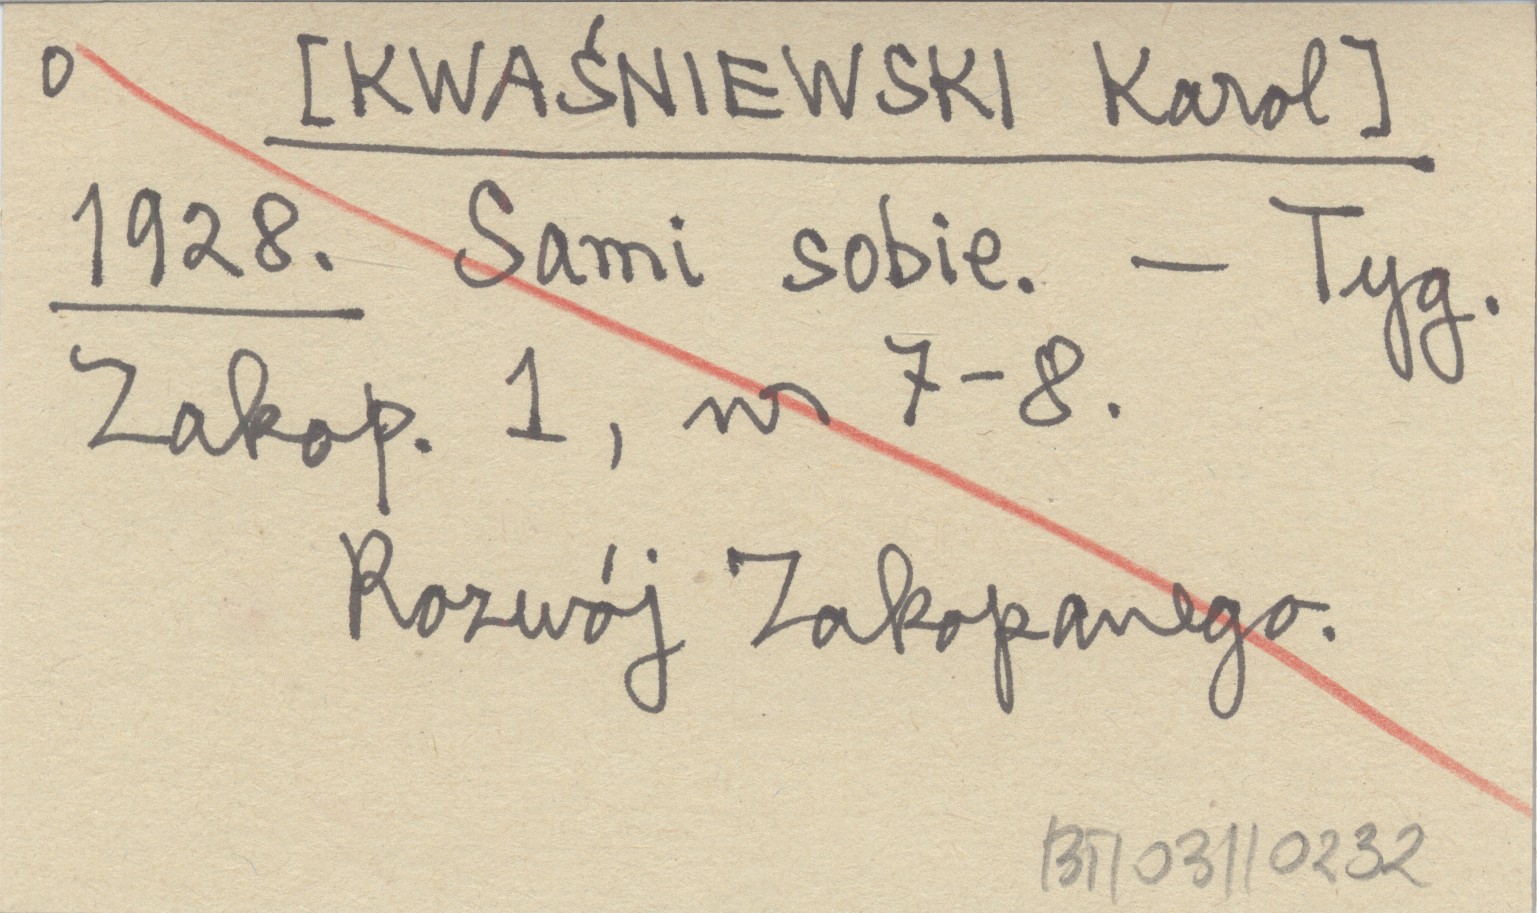 o [KWAŚNIEWSKI Karol]
1928. Sami sobie. — Tyg.
Zakop. 1, nr 7-8.
Rozwój Zakopanego.
BT/03/10232